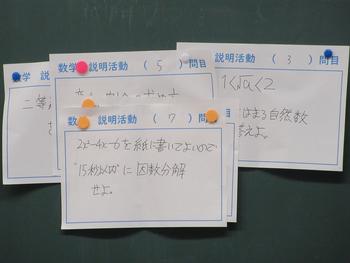 数学 説
二等
数学 説明活動 ( 5 ) 問目
数学 説明活動 ( 3 ) 問目
1<√a<2
はまる自然数
答えよ。
数学 説明活動 ( 7 ) 問目
2x²-4x-6を紙に書いてよいので
"15秒以内"に因数分解
せよ。